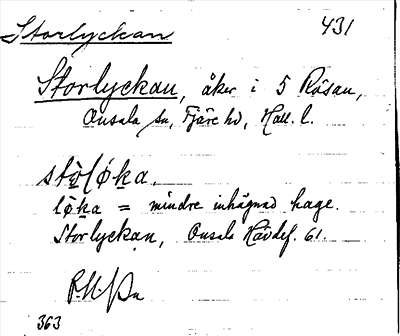 Storlyckan 431
Storlyckan, åker i 5 Rösan,
Onsala sn, Fjäre hd, Hall. l.
stòl̀ǿka.
lǿka = mindre inhägnad hage.
Storlyckan, Onsala Hävdef. 61.
363